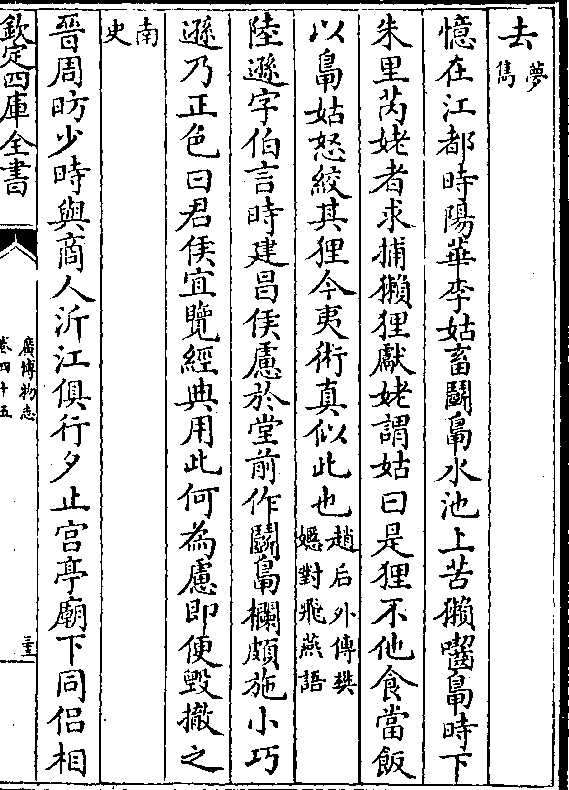 去夢雋
憶在江都時陽華李姑畜鬭鳧水池上苦獺囓鳧時下
朱里芮姥者求捕獺狸獻姥謂姑曰是狸不他食當飯
以鳧姑怒絞其狸今夷術真似此也趙后外傳樊嫕對飛燕語
陸遜字伯言時建昌侯慮於堂前作鬭鳧欄頗施小巧
遜乃正色曰君侯宜覽經典用此何為慮即便毀撤之
南史
晉周昉少時與商人沂江俱行夕止宫亭廟下同侣相
欽定四庫全書
廣博物志
卷四十五